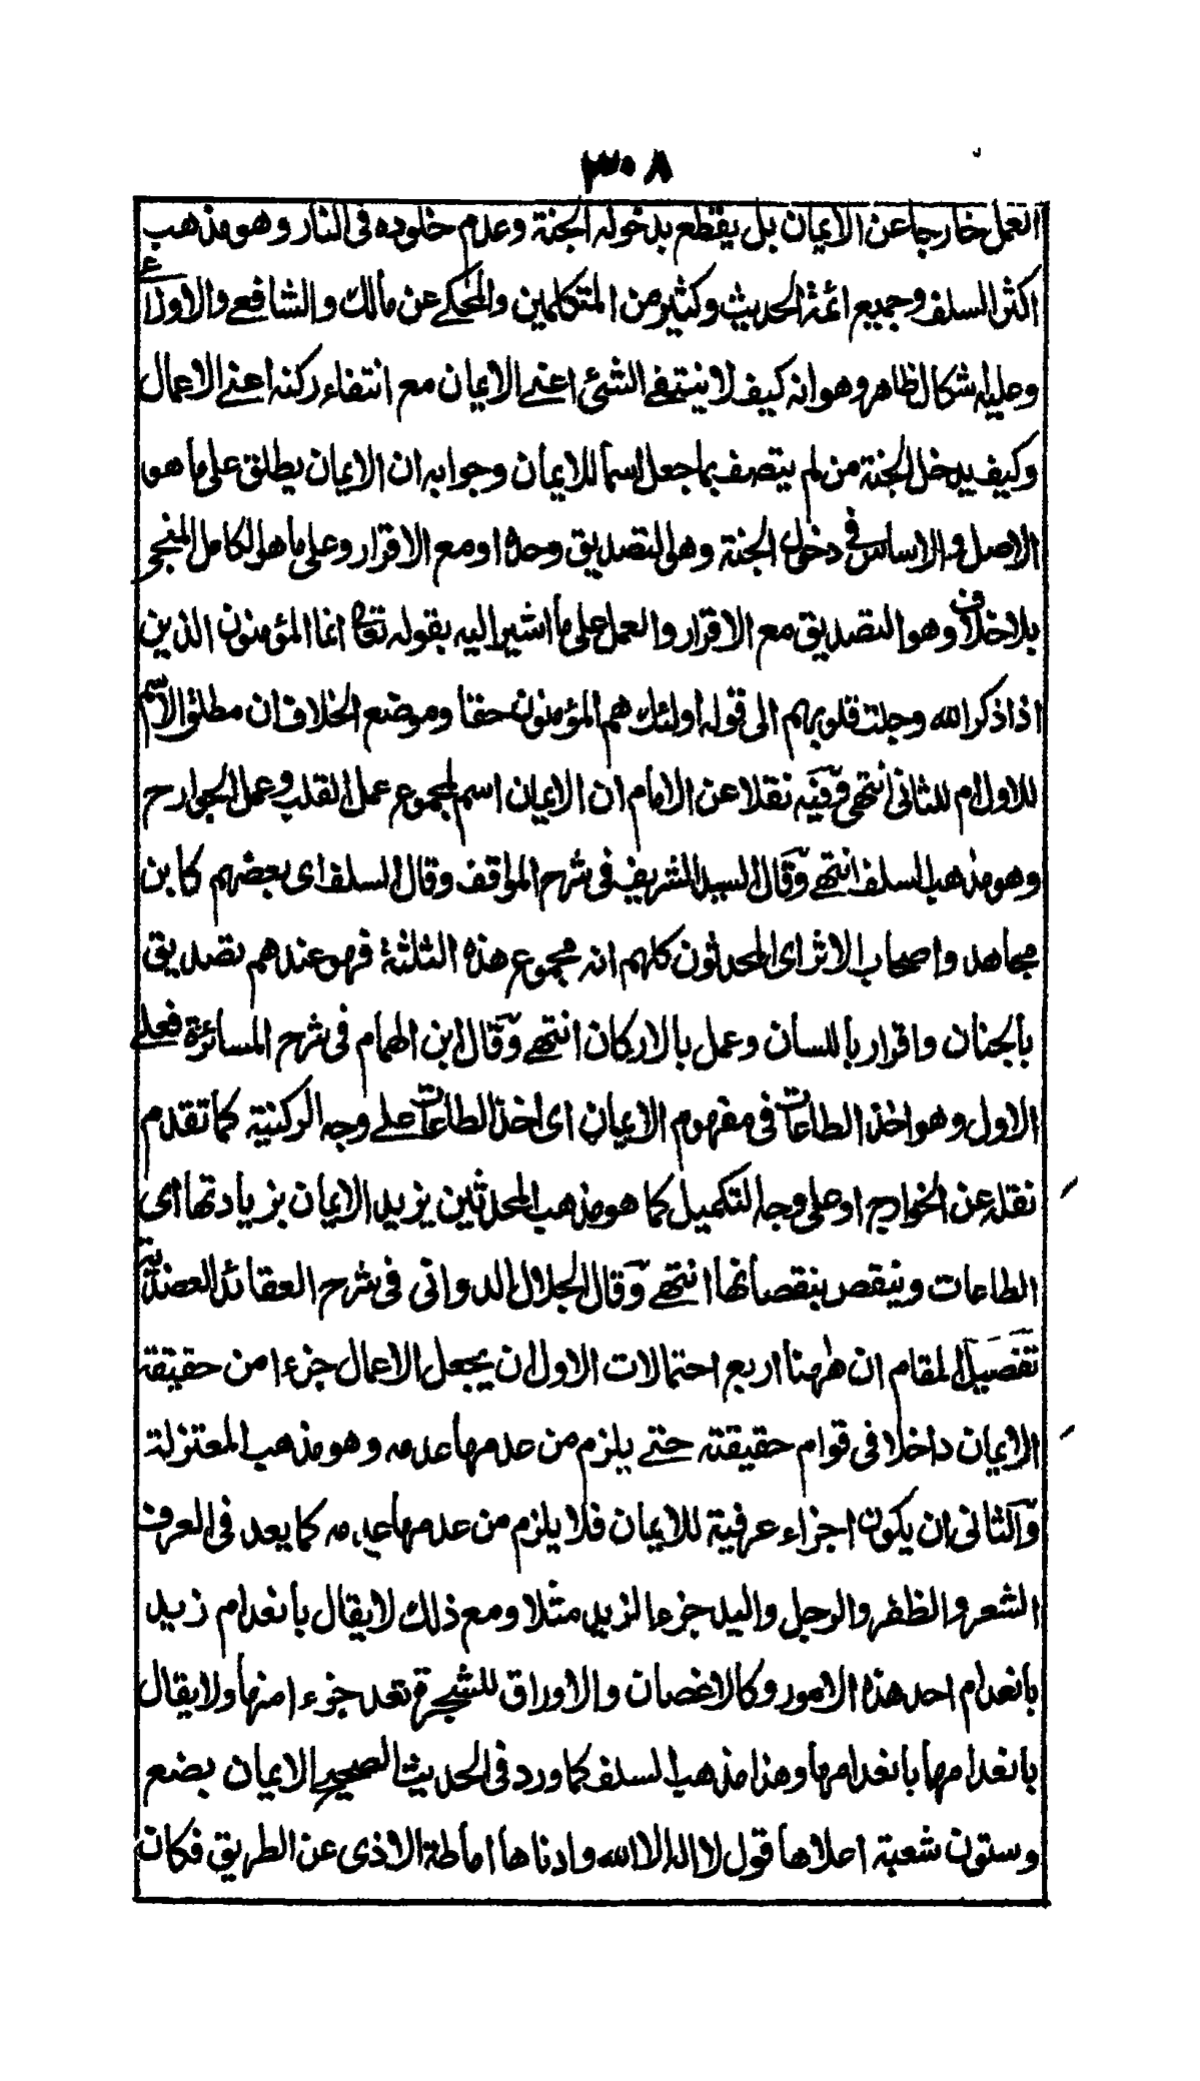 ٣٠٨
العمل خارجا عن الايمان بل يقطع بدخوله الجنة وعدم خلوده فى النار وهو مذهب
اكثر السلف وجميع ائمة الحديث وكثير من المتكلمين والمحكى عن مالك والشافعے والاوزاعے
وعليه اشكال ظاهر وهو انه كيف لا ينتفے الشئ اعنے الايمان مع انتفاء ركنه اعنے الاعمال
وكيف يدخل الجنة من لم يتصف بما جعل اسما للايمان وجوابه ان الايمان يطلق على ما هو
الاصل والاساس فى دخول الجنة وهو التصديق وحده او مع الاقرار وعلى ما هو الكامل المنجى
بلا خلاف وهو التصديق مع الاقرار والعمل على ما اشير اليه بقوله تعالى انما المؤمنون الذين
اذا ذكر الله وجلت قلوبهم الى قوله اولئك هم المؤمنون حقا وموضع الخلاف ان مطلق الاسم
للاول ام للثانى انتهى وفيه نقلا عن الامام ان الايمان اسم لمجموع عمل القلب وعمل الجوارح
وهو مذهب السلف انتهے وقال السيد الشريف فى شرح المواقف وقال السلف اى بعضهم كابن
مجاهد واصحاب الاثر اى المحدثون كلهم انه مجموع هذه الثلثة فهو عندهم تصديق
بالجنان واقرار باللسان وعمل بالاركان انتهے وقال ابن الهمام فى شرح المسائرة فعلے
الاول وهو اخذ الطاعات فى مفهوم الايمان اى اخذ الطاعات علے وجه الركنية كما تقدم
نقله عن الخوارج او على وجه التكميل كما هو مذهب المحدثين يزيد الايمان بزيادتها اى
الطاعات وينقص بنقصانها انتهے وقال الجلال الدوانى فى شرح العقائد العضدية
تفصيل المقام ان ههنا اربع احتمالات الاول ان يجعل الاعمال جزءا من حقيقة
الايمان داخلا فى قوام حقيقته حتے يلزم من عدمها عدمه وهو مذهب المعتزلة
والثانى ان يكون اجزاء عرفية للايمان فلا يلزم من عدمها عدمه كما يعد فى العرف
الشعر والظفر والرجل واليد جزءا لزيد مثلا ومع ذلك لا يقال بانعدام زيد
بانعدام احد هذه الامور وكالاغصان والاوراق للشجرة تعد جزءا منها ولا يقال
بانعدامها بانعدامها وهذا مذهب السلف كما ورد فى الحديث الصحيح الايمان بضع
وستون شعبة اعلاها قول لا اله الا الله وادناها اماطة الاذى عن الطريق فكان